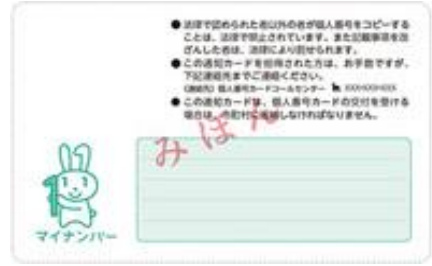 ●法律で認められた者以外の者が個人番号をコピーする
ことは、法律で禁止されています。また記載事項を改
ざんした者は、法律により罰せられます。
●この通知カードを拾得された方は、お手数ですが、
下記連絡先までご連絡ください。
(連絡先) 個人番号カードコールセンター
●この通知カードは、個人番号カードの交付を受ける
場合は、市町村に返納しなければなりません。
みほん
マイナンバー